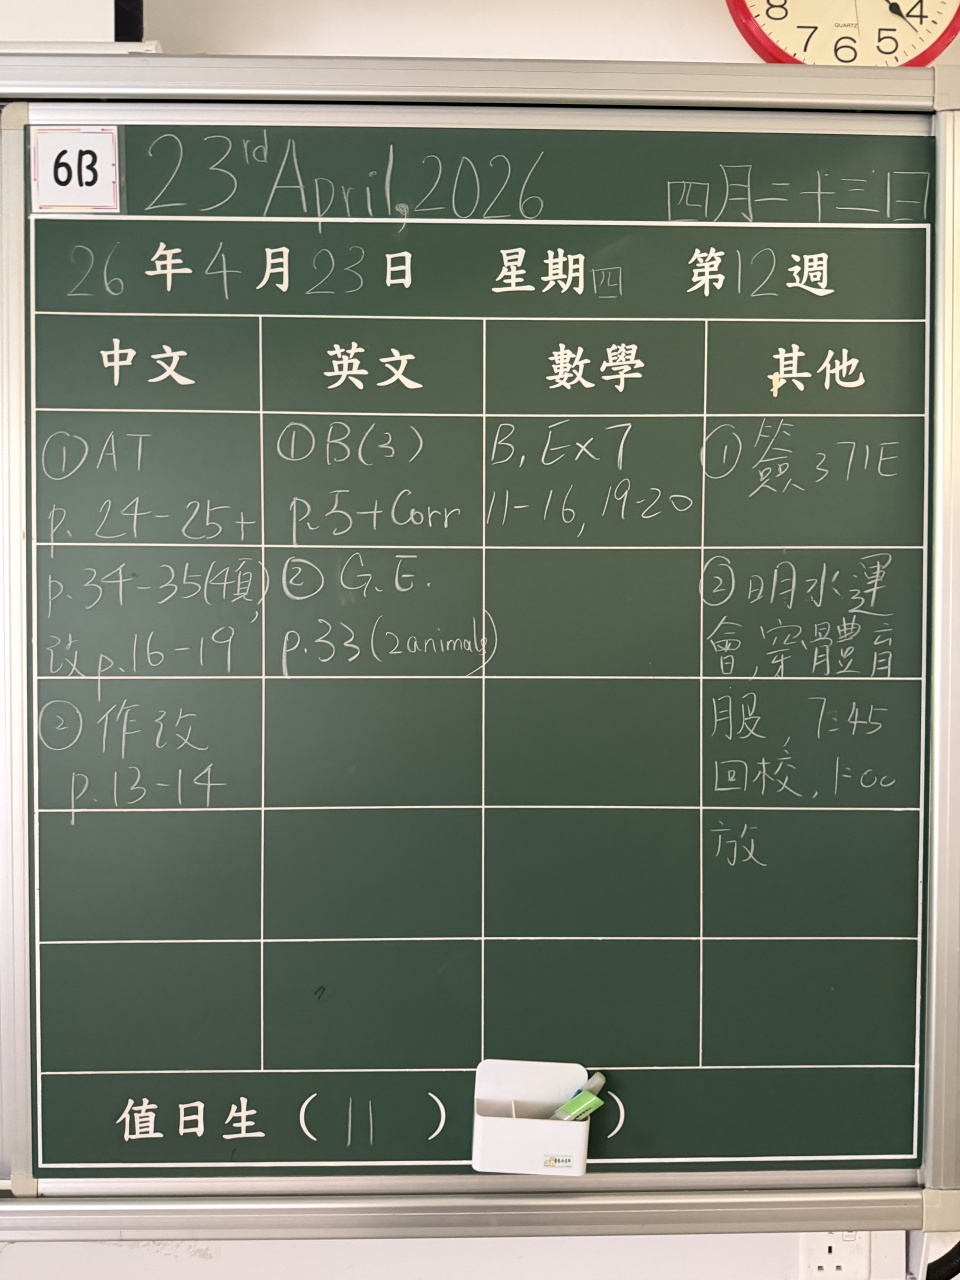 8 7 6 5 4
QUARTZ
6B 23rd April, 2026 四月二十三日
26年4月23日 星期四 第12週
中文 英文 數學 其他
①AT
p. 24-25+
p.34-35(4項)
改p.16-19
②作改
p.13-14
①B(3)
p.5+Corr
② G.E.
p.33(2animals)
B, Ex7
11-16, 19-20
①簽371E
②明水運
會,穿體育
服, 7:45
回校, 1:00
放
值日生 ( 11 ) )